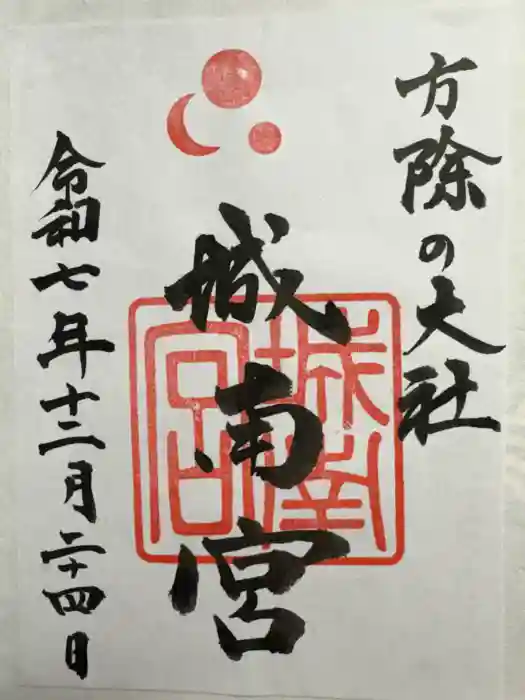 方除の大社
城南宮
城南宮
令和七年十二月二十四日